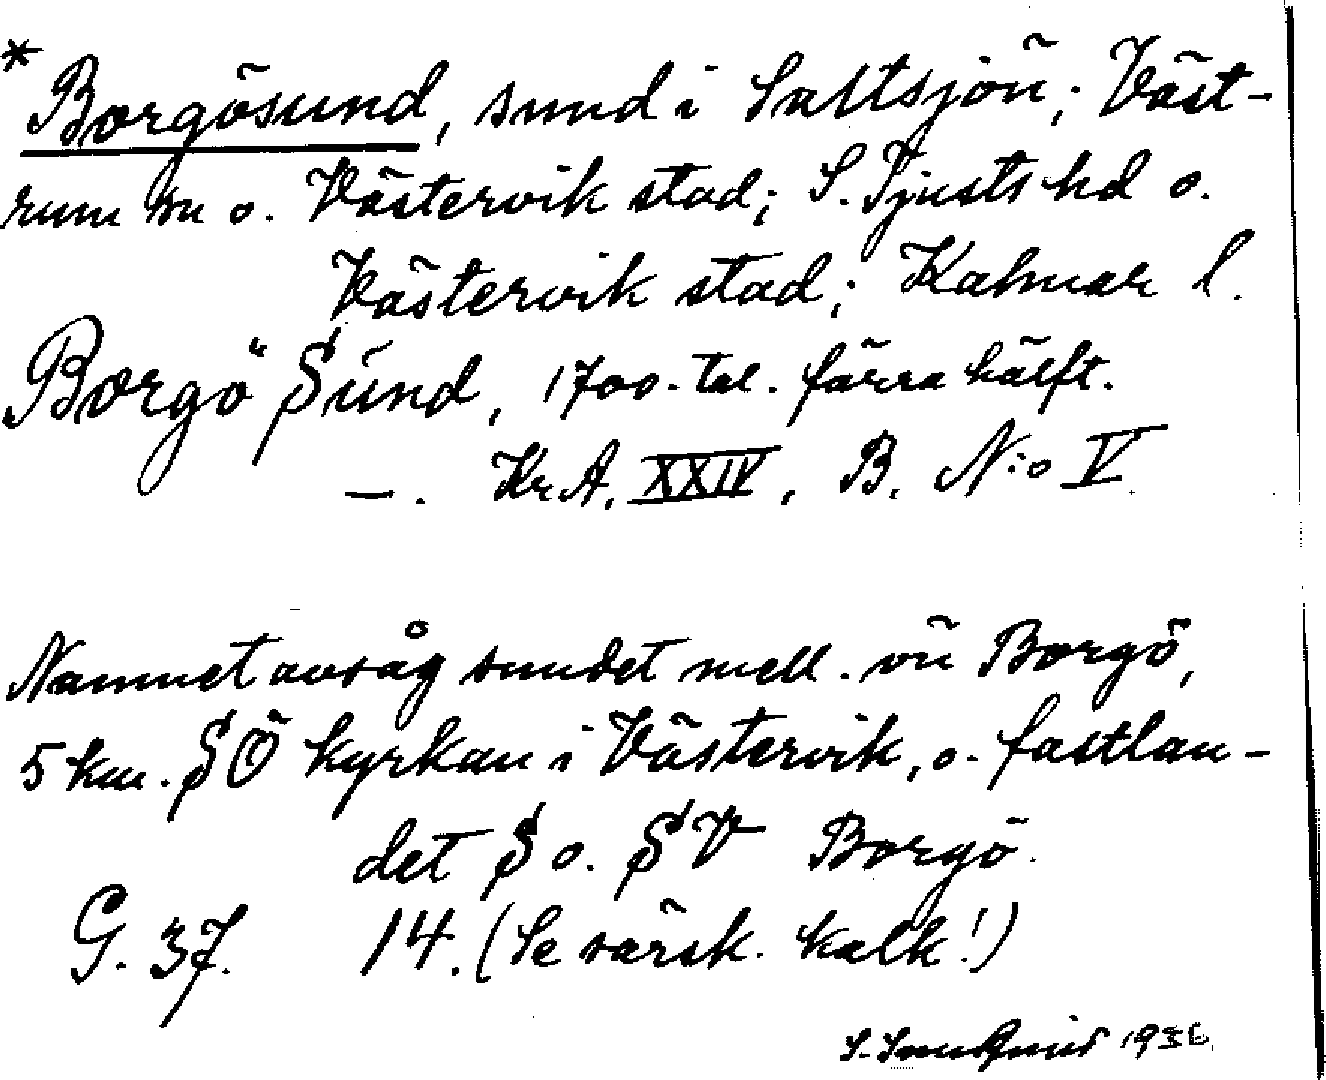 *
Borgösund, sund i Saltsjön; Väst-
rum sn o. Västervik stad; S. Tjusts hd o.
Västervik stad; Kalmar l.
Borgö Sund, 1700-tal. förra hälft.
—. Kr.A. XXIV, B. N:o V
Namnet avsåg sundet mell. ön Borgö,
5 km. SÖ kyrkan i Västervik, o. fastlan-
det S o. SV Borgö.
G. 37. 14. (Se särsk. kalk!)
1936